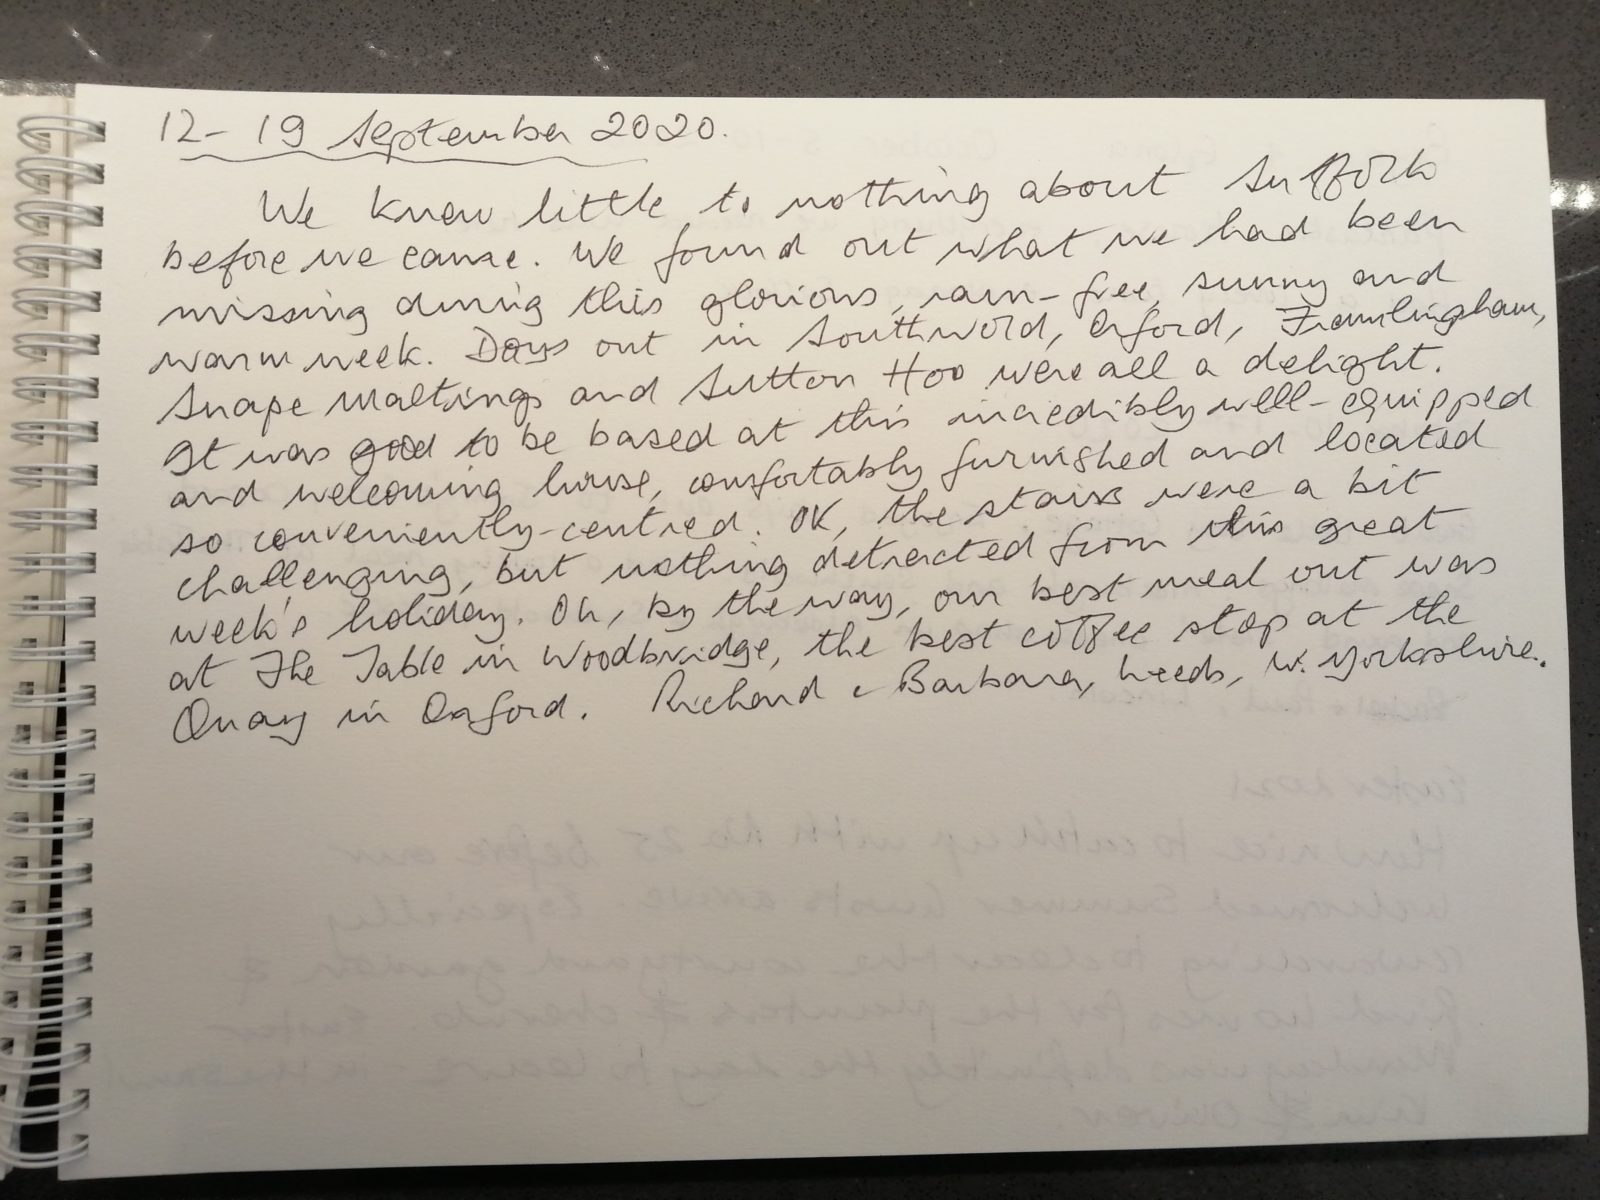 12-19 September 2020.
We knew little to nothing about Suffolk
before we came. We found out what we had been
missing during this glorious, rain-free, sunny and
warm week. Days out in Southwold, Orford, Framlingham,
Snape Maltings and Sutton Hoo were all a delight.
It was good to be based at this incredibly well-equipped
and welcoming house, comfortably furnished and located
so conveniently-centred. OK, the stairs were a bit
challenging, but nothing detracted from this great
week's holiday. Oh, by the way, our best meal out was
at The Table in Woodbridge, the best coffee stop at the
Quay in Orford. Richard & Barbara, Leeds, W. Yorkshire.